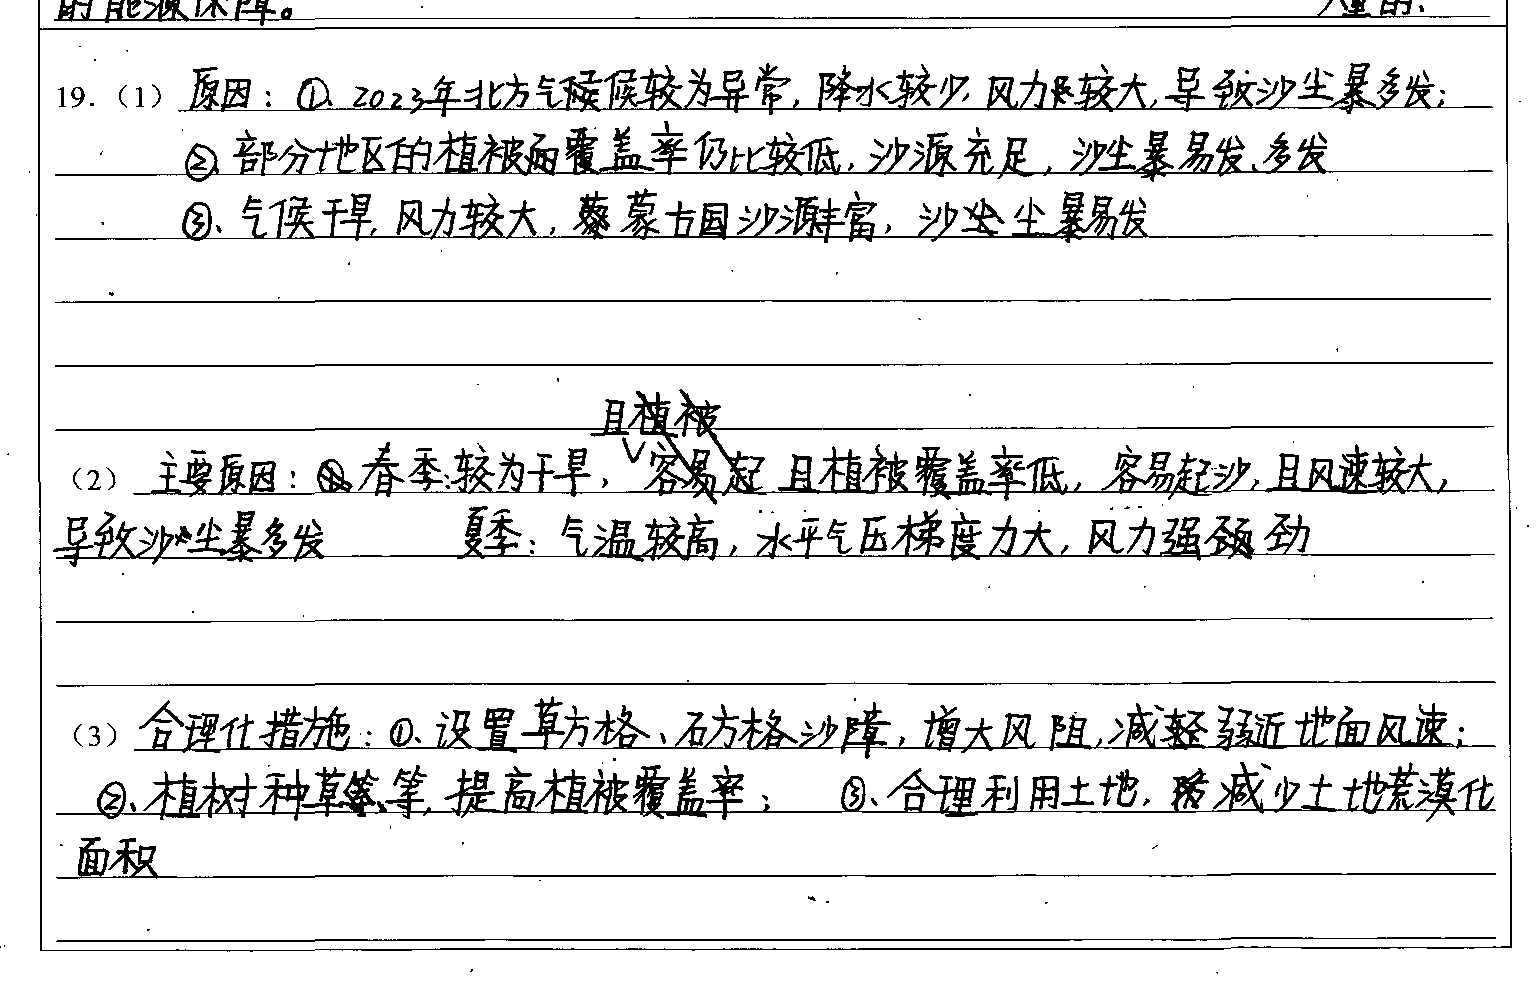 的能源保障。
19.（1）原因：①、2023年北方气候较为异常，降水较少，风力较大，导致沙尘暴多发；
②、部分地区的植被覆盖率仍比较低，沙源充足，沙尘暴易发、多发
③、气候干旱，风力较大，蒙古国沙源丰富，沙尘暴易发
（2）主要原因：春季：较为干旱，且植被覆盖率低，容易起沙，且风速较大，
导致沙尘暴多发 夏季：气温较高，水平气压梯度力大，风力强劲
（3）合理化措施：①、设置草方格、石方格沙障，增大风阻，减弱近地面风速；
②、植树种草等，提高植被覆盖率； ③、合理利用土地，减少土地荒漠化
面积